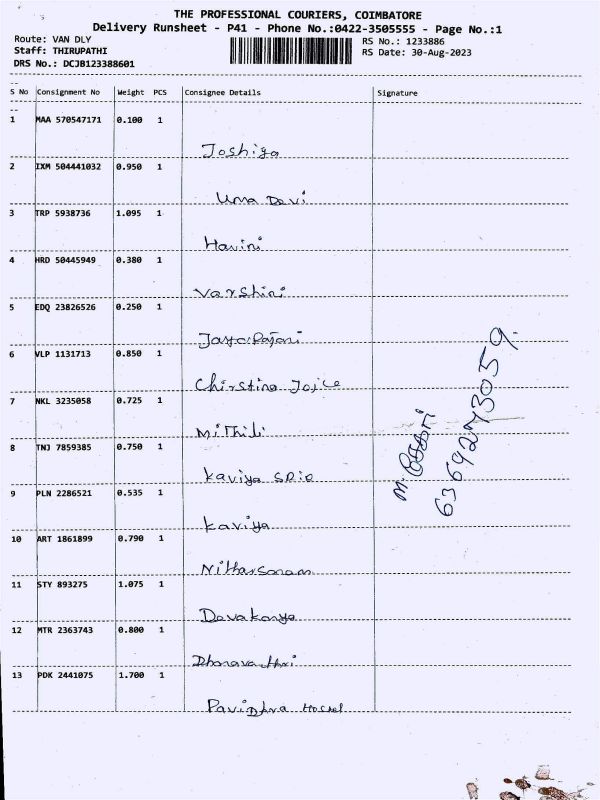 THE PROFESSIONAL COURIERS, COIMBATORE
Delivery Runsheet - P41 - Phone No.:0422-3505555 - Page No.:1
Route: VAN DLY
RS No.: 1233886
Staff: THIRUPATHI
RS Date: 30-Aug-2023
DRS No.: DCJB123388601
S No Consignment No Weight PCS Consignee Details Signature
1 MAA 570547171 0.100 1
Joshiga
2 IXM 504441032 0.950 1
Uma Devi
3 TRP 5938736 1.095 1
Harini
4 HRD 50445949 0.380 1
Varshini
5 EDQ 23826526 0.250 1
6 VLP 1131713 0.850 1
Chirstina Joice
7 NKL 3235058 0.725 1
Mithili
8 TNJ 7859385 0.750 1
Kaviya
9 PLN 2286521 0.535 1
Kaviya
10 ART 1861899 0.790 1
11 STY 893275 1.075 1
12 MTR 2363743 0.800 1
13 PDK 2441075 1.700 1
Pavidhra Hostel
M.
6369273059.